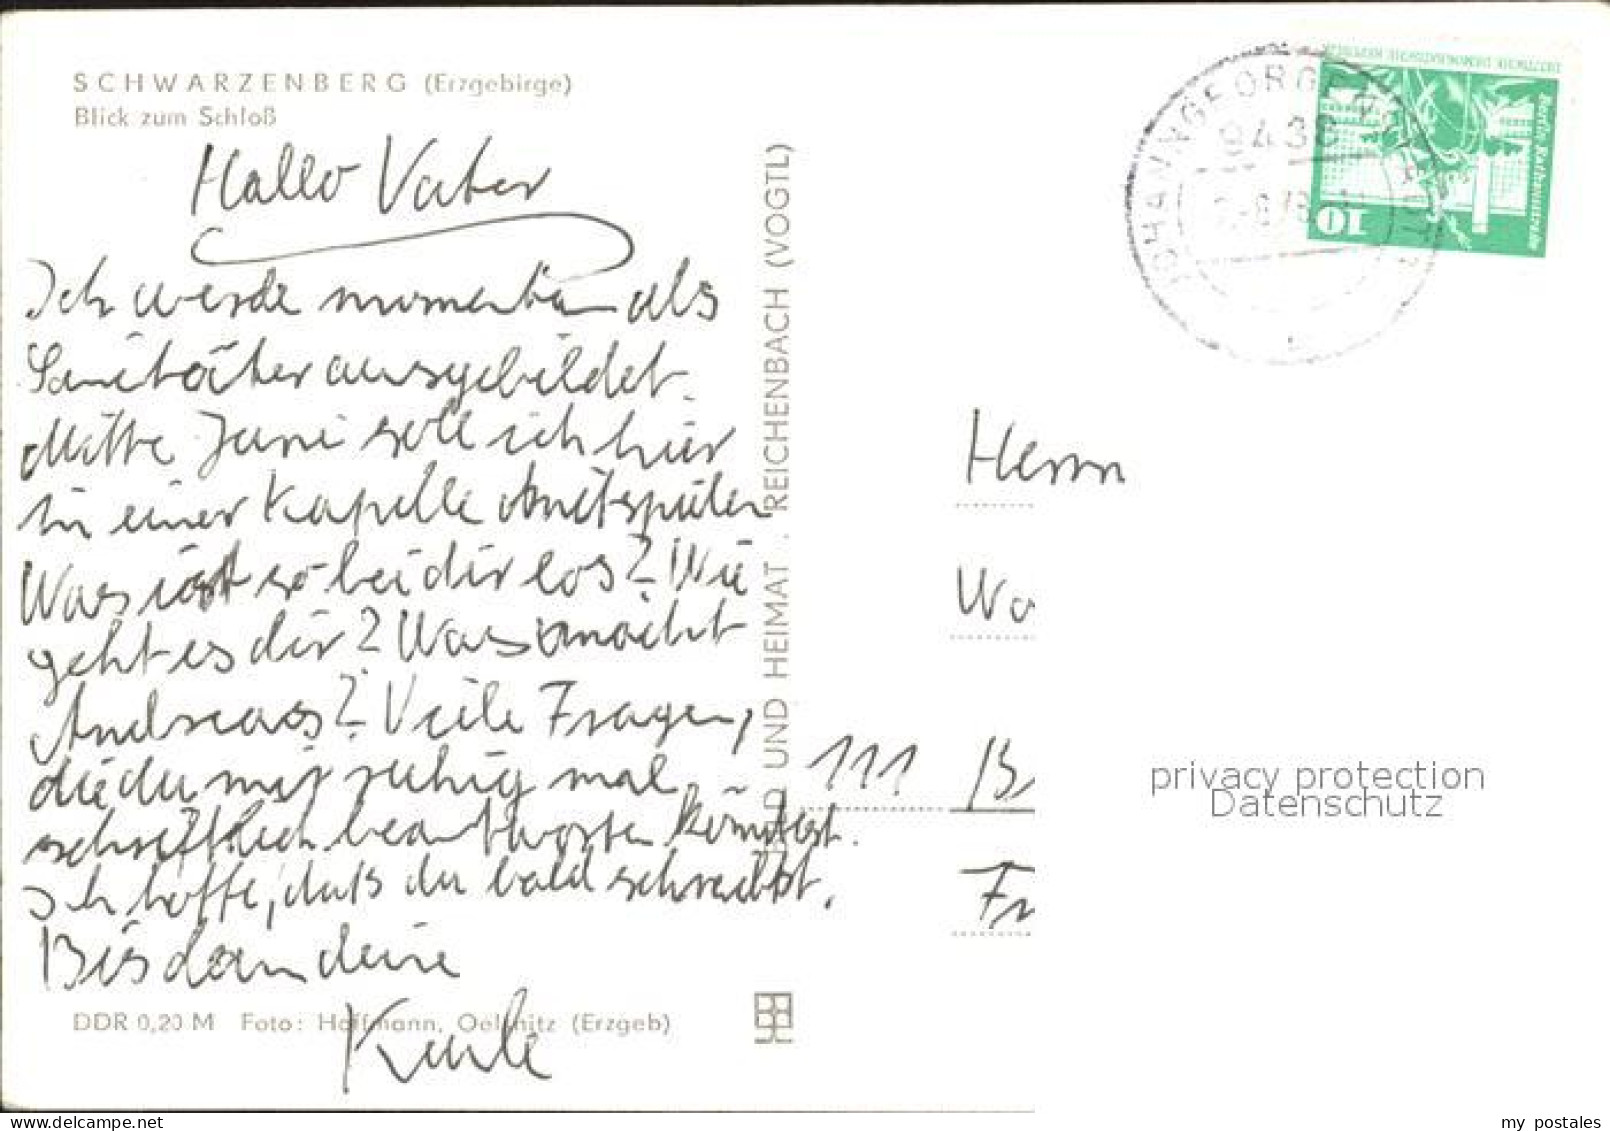 SCHWARZENBERG (Erzgebirge)
Blick zum Schloß
Hallo Vater
Ich werde momentan als
Sanitäter ausgebildet.
Mitte Juni soll ich hier
in einer Kapelle mitspielen
Was ist so bei dir los? Wie
geht es dir? Was macht
Andreas? Viele Fragen,
die du mir ruhig mal
schriftlich beantworten könntest.
Ich hoffe, daß du bald schreibst.
Bis dann deine
DDR 0,20 M Foto: Hoffmann, Oelsnitz (Erzgeb)
BILD UND HEIMAT . REICHENBACH (VOGTL)
JOHANNGEORGENSTADT
DEUTSCHE DEMOKRATISCHE REPUBLIK
Berlin, Rathausstraße
10
Herrn
Wo
111 B
Fr
privacy protection
Datenschutz
my postales